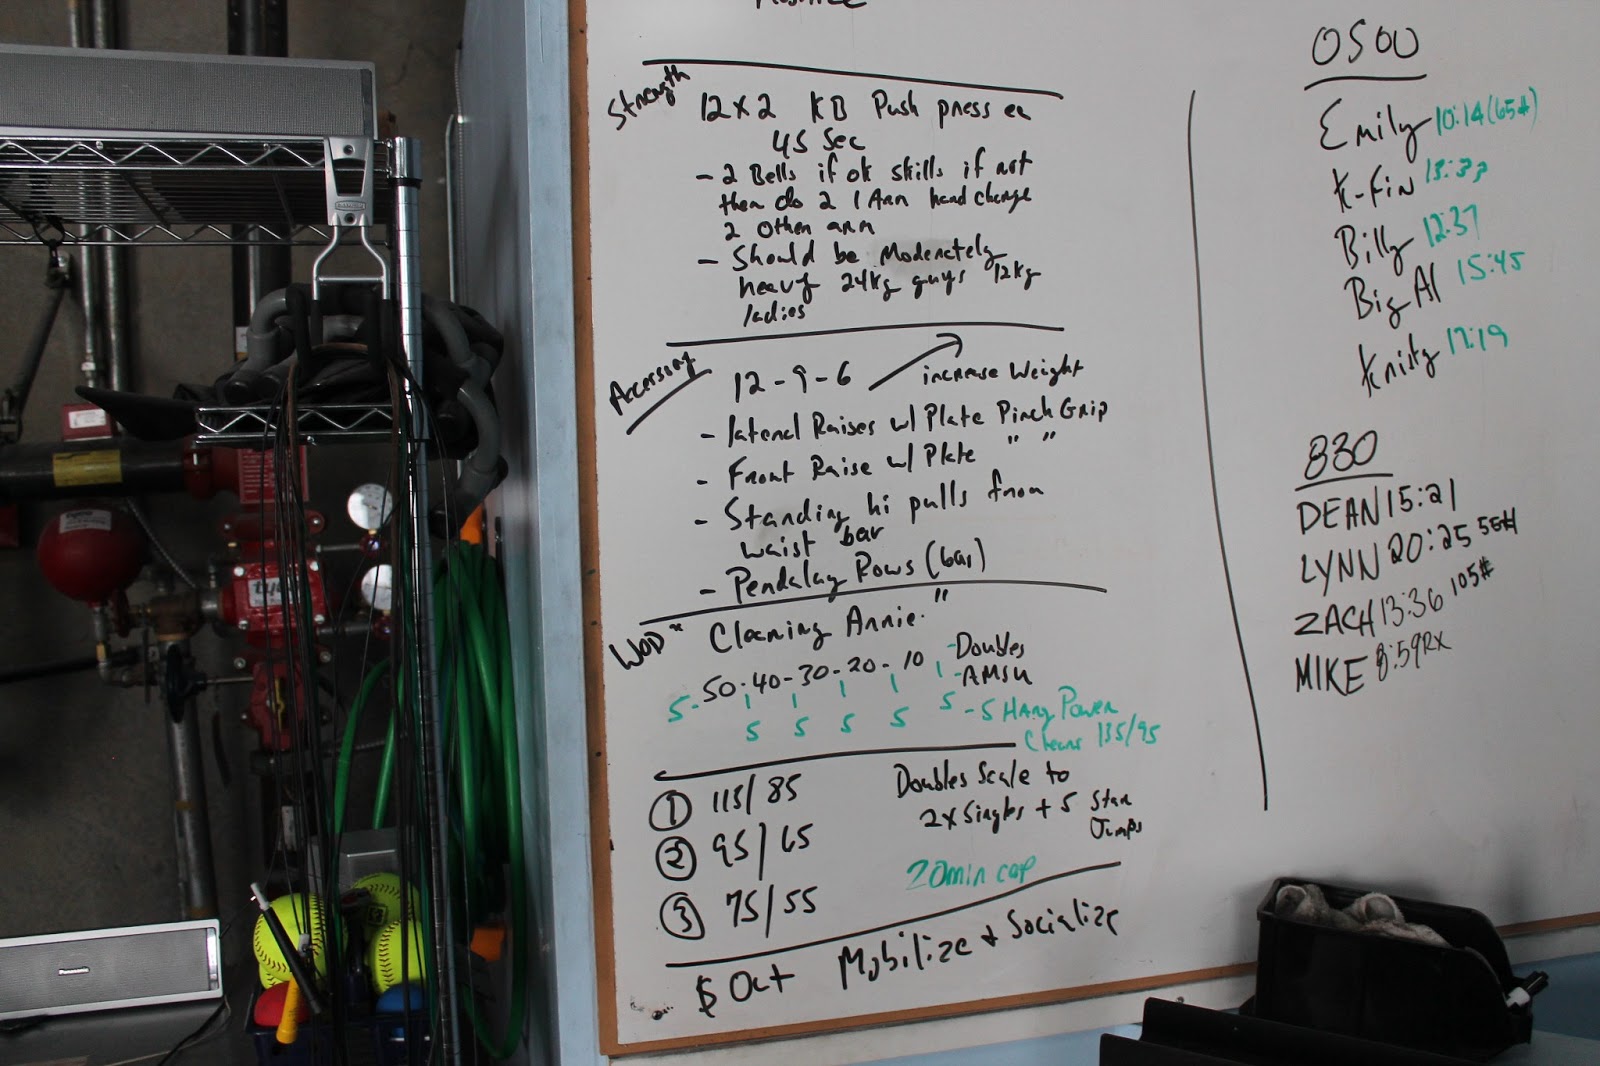 Strength
12 x 2 KB Push press ea
45 Sec
- 2 Bells if ok skills if not
then do 2 1 Arm hand change
2 other arm
- Should be Moderately
heavy 24kg guys 12kg
ladies
Accessory
12 - 9 - 6 increase Weight
- lateral Raises w/ Plate Pinch Grip
- Front Raise w/ Plate " "
- Standing hi pulls from
waist bar
- Pendalay Rows (bar)
WOD " Cleaning Annie "
50 - 40 - 30 - 20 - 10 - Doubles
- AMSU
5 - 5 5 5 5 5 - 5 Hang Power
Cleans 135/95
1 115/85
2 95/65
3 75/55
Doubles Scale to
2x Singles + 5 Star
Jumps
20 min cap
$ Out Mobilize + Socialize
0500
Emily 10:14 (65#)
K-Fin 13:33
Billy 12:37
Big Al 15:45
Kristy 17:19
830
DEAN 15:21
LYNN 20:25 55#
ZACH 13:36 105#
MIKE 8:59 RX
Panasonic
tyco